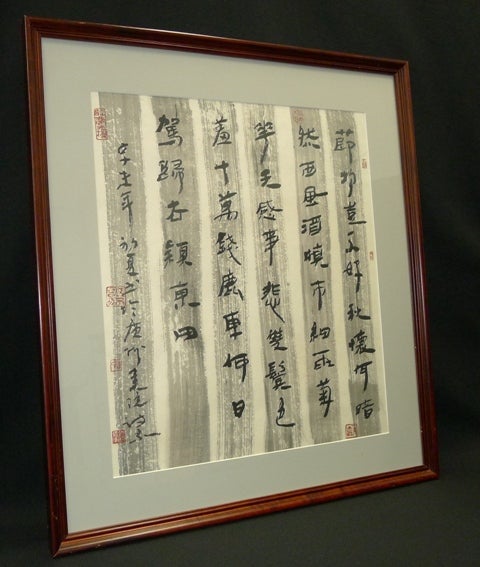 節物豈不好秋懷何暗
然西風酒旗市細雨菊
華天感事悲雙鬢包
羞十萬錢鹿車何日
駕歸去潁東田
辛未年初夏於廣州